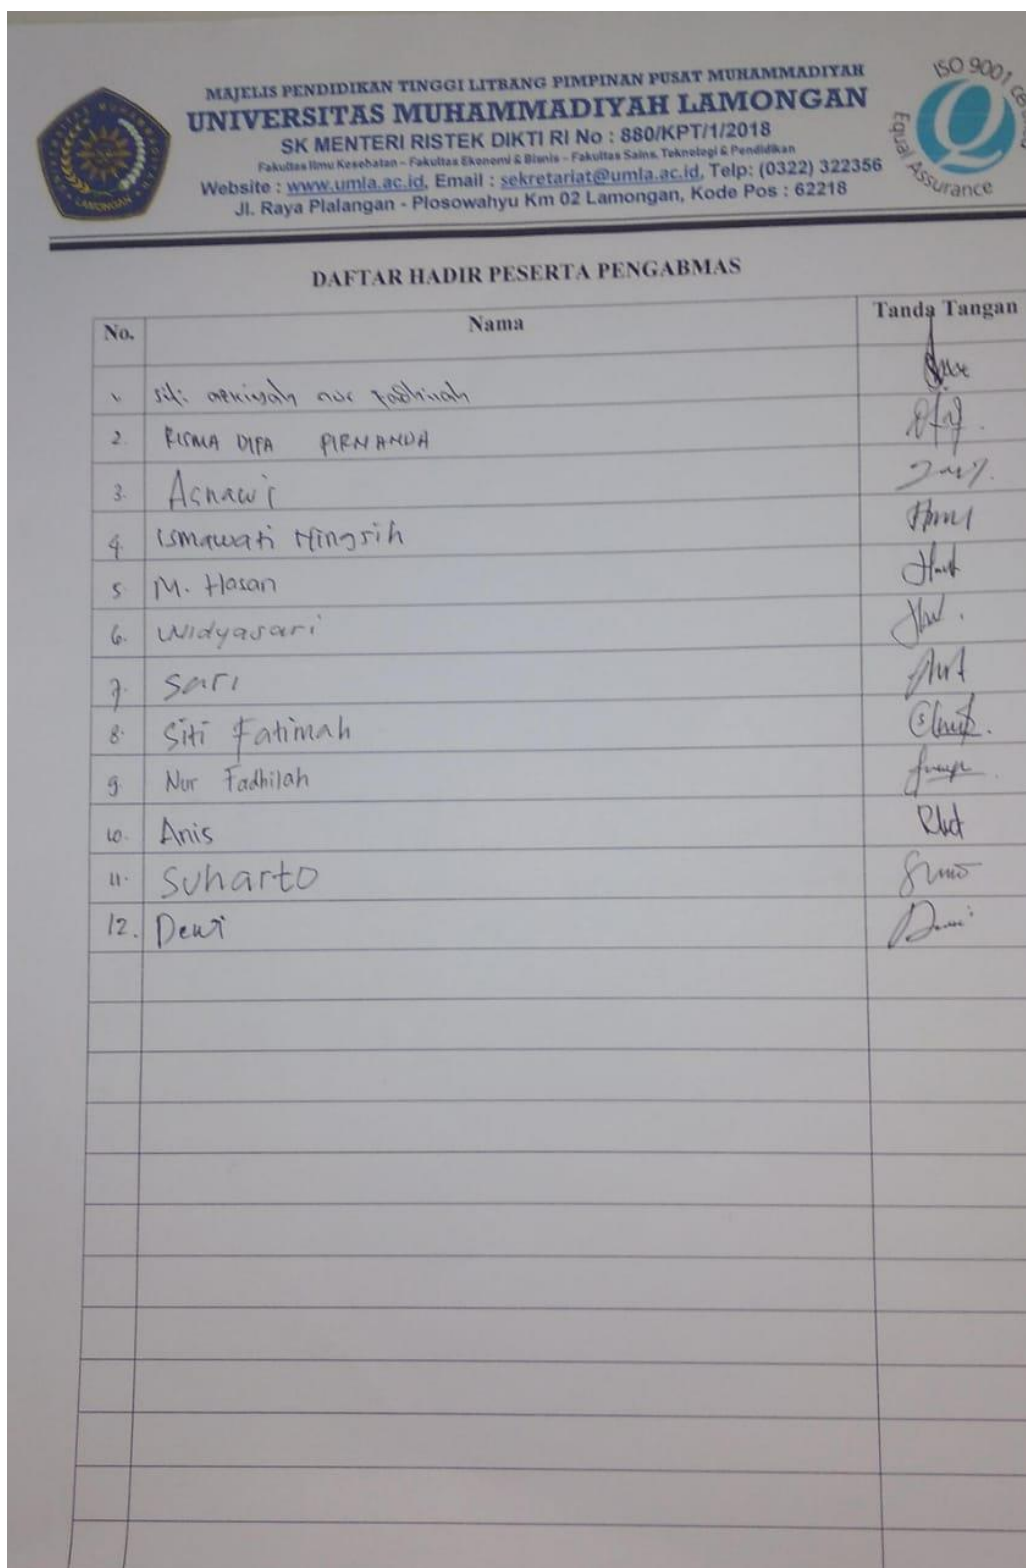 MAJELIS PENDIDIKAN TINGGI LITBANG PIMPINAN PUSAT MUHAMMADIYAH
UNIVERSITAS MUHAMMADIYAH LAMONGAN
SK MENTERI RISTEK DIKTI RI No : 880/KPT/1/2018
Fakultas Ilmu Kesehatan – Fakultas Ekonomi & Bisnis – Fakultas Sains, Teknologi & Pendidikan
Website : www.umla.ac.id, Email : sekretariat@umla.ac.id, Telp: (0322) 322356
Jl. Raya Plalangan - Plosowahyu Km 02 Lamongan, Kode Pos : 62218
LAMONGAN
ISO 9001
Equal Assurance
DAFTAR HADIR PESERTA PENGABMAS
No. Nama Tanda Tangan
1. Siti nur Fadhilah
2. RISMA DIFA PIRNANDA
3. Asnawi
4. Ismawati Ningsih
5. M. Hasan
6. Widyasari
7. Sari
8. Siti Fatimah
9. Nur Fadhilah
10. Anis
11. Suharto
12. Dewi